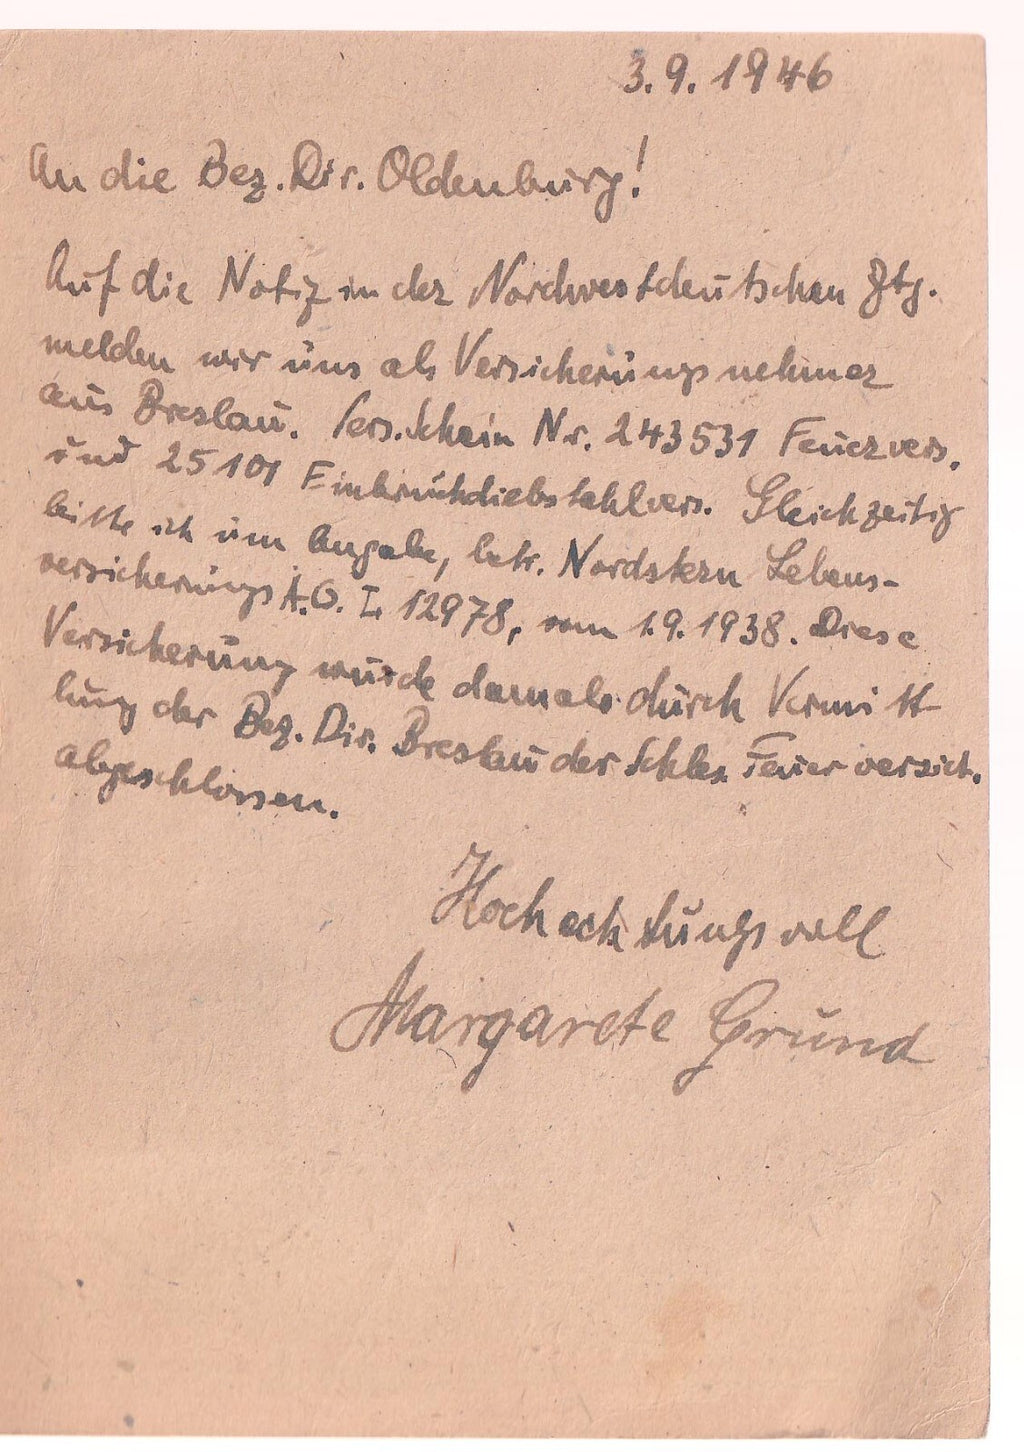 3.9.1946
An die Bez. Dir. Oldenburg!
Auf die Notiz in der Nordwestdeutschen Ztg.
melden wir uns als Versicherungsnehmer
aus Breslau. Vers. Schein Nr. 243531 Feuervers.
und 25101 Einbruchdiebstahlvers. Gleichzeitig
bitte ich um Angabe, betr. Nordstern Lebens-
versicherungs A.G. L 12978, vom 1.9.1938. Diese
Versicherung wurde damals durch Vermitt
lung der Bez. Dir. Breslau der Schles. Feuerversich.
abgeschlossen.
Hochachtungsvoll
Margarete Grund